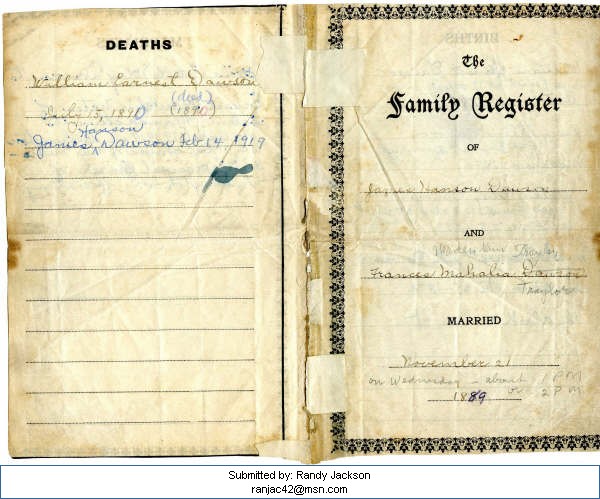 DEATHS
William Earnest Dawson
(died)
July 15, 1890 (1890)
Hanson
James Dawson Feb 14 1919
The
Family Register
OF
James Hanson Dawson
AND
Maiden Traylor
Frances Mahalia Dawson
Traylor
MARRIED
November 21
on Wednesday - about 1 PM
or 2 PM
1889
Submitted by: Randy Jackson
ranjac42@msn.com